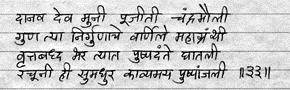 दानव देव मुनी पूजीती चंद्रमौली
गुण त्या निर्गुणाचे वर्णिले महाग्रंथी
वृत्तबध्द भर त्यात पुष्पदंते घातली
रचूनी ही सुमधुर काव्यमय पुष्पांजली ॥३३॥